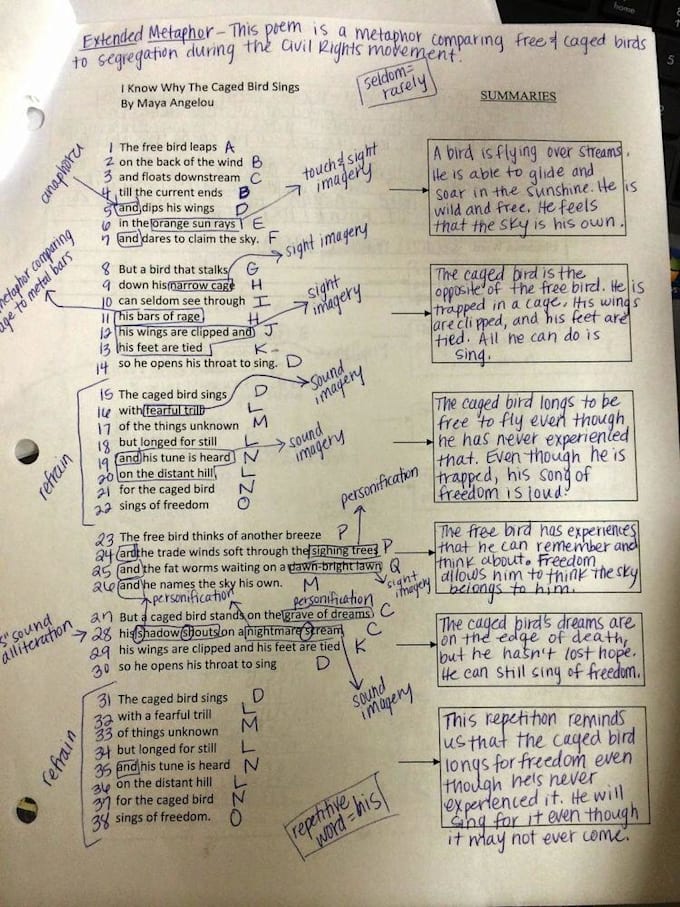 Extended Metaphor - This poem is a metaphor comparing free & caged birds
to segregation during the Civil Rights movement.
I Know Why The Caged Bird Sings
By Maya Angelou
seldom =
rarely
SUMMARIES
anaphora
1 The free bird leaps A
2 on the back of the wind B
3 and floats downstream C
4 till the current ends B
5 and dips his wings D
6 in the orange sun rays E
7 and dares to claim the sky. F
touch & sight
imagery
A bird is flying over streams.
He is able to glide and
soar in the sunshine. He is
wild and free. He feels
that the sky is his own.
sight imagery
metaphor comparing
age to metal bars
8 But a bird that stalks G
9 down his narrow cage H
10 can seldom see through I
11 his bars of rage H
12 his wings are clipped and J
13 his feet are tied K
14 so he opens his throat to sing. D
sight
imagery
The caged bird is the
opposite of the free bird. He is
trapped in a cage. His wings
are clipped, and his feet are
tied. All he can do is
sing.
refrain
15 The caged bird sings D
16 with fearful trill L
17 of the things unknown M
18 but longed for still L
19 and his tune is heard N
20 on the distant hill L
21 for the caged bird N
22 sings of freedom O
sound
imagery
sound
imagery
The caged bird longs to be
free to fly even though
he has never experienced
that. Even though he is
trapped, his song of
freedom is loud.
personification
23 The free bird thinks of another breeze P
24 and the trade winds soft through the sighing trees P
25 and the fat worms waiting on a dawn-bright lawn Q
26 and he names the sky his own. M
sight
imagery
The free bird has experiences
that he can remember and
think about. Freedom
allows him to think the sky
belongs to him.
personification
personification
"s" sound
alliteration
27 But a caged bird stands on the grave of dreams C
28 his shadow shouts on a nightmare scream C
29 his wings are clipped and his feet are tied K
30 so he opens his throat to sing D
sound
imagery
The caged bird's dreams are
on the edge of death,
but he hasn't lost hope.
He can still sing of freedom.
refrain
31 The caged bird sings D
32 with a fearful trill L
33 of things unknown M
34 but longed for still L
35 and his tune is heard N
36 on the distant hill L
37 for the caged bird N
38 sings of freedom. O
repetitive
word = his
This repetition reminds
us that the caged bird
longs for freedom even
though he's never
experienced it. He will
sing for it even though
it may not ever come.
home